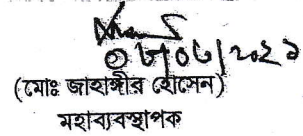 ০৮/০৮/২০২১
(মোঃ জাহাঙ্গীর হোসেন)
মহাব্যবস্থাপক